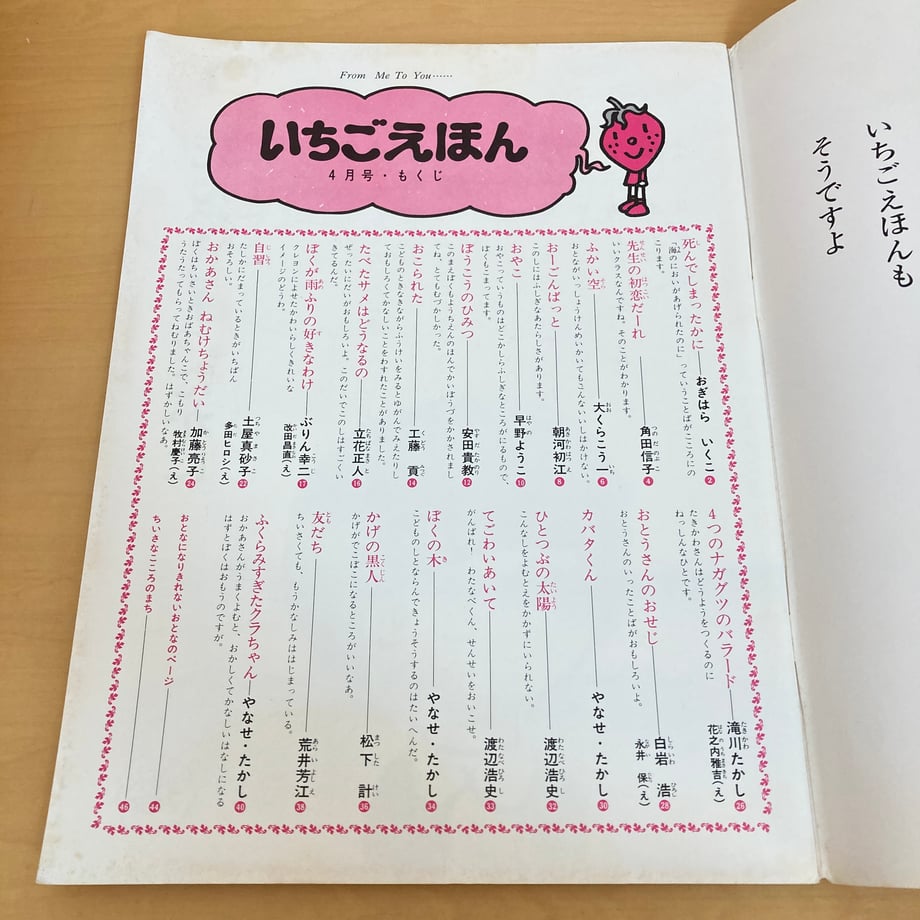 From Me To You……
いちごえほん
4月号・もくじ
死んでしまったかに おぎはら いくこ 2
「海のにおいがあげられたのに」っていうことばがこころにの
こります。
先生の初恋だーれ 角田信子 4
いいクラスなんですね。そのことがわかります。
ふかい空 大くらこう一 6
おとながいっしょうけんめいかいてもこんないいしはかけない。
おーごんばっと 朝河初江 8
このしにはふしぎなあたらしさがあります。
おやこ 早野ようこ 10
おやこっていうものはどこかしらふしぎなところがにるもので、
ぼくもこまってます。
ぼうこうのひみつ 安田貴教 12
このまえぼくもようちえんのほんでかいぼうづをかかされまし
てね、とてもむづかしかった。
おこられた 工藤 貢 14
こどものときなきながらふうけいをみるとゆがんでみえたりし
ておもしろくてかなしいことをわすれたことがありました。
たべたサメはどうなるの 立花正人 16
ぜったいにだいがおもしろいよ。このだいでこのしはすごくい
きてるんだ。
ぼくが雨ふりの好きなわけ ぶりん幸二 改田昌直(え) 17
クレヨンによせたかわいらしくきれいな
イメージのどうわ。
自習 土屋真砂子 多田ヒロシ(え) 22
たしかにだまっているときがいちばん
おそろしい。
おかあさん ねむけちょうだい 加藤亮子 牧村慶子(え) 24
ぼくはちいさいときおばあちゃんこで、こもり
うたうたってもらってねむりました。はずかしいなあ。
4つのナガグツのバラード 滝川たかし 花之内雅吉(え) 26
たきかわさんはどうようをつくるのに
ねっしんなひとです。
おとうさんのおせじ 白岩 浩 永井 保(え) 28
おとうさんのいったことばがおもしろいよ。
カバタくん やなせ・たかし 30
ひとつぶの太陽 渡辺浩史 32
こんなしをよむとえをかかずにいられない。
てごわいあいて 渡辺浩史 33
がんばれ! わたなべくん、せんせいをおいこせ。
ぼくの木 やなせ・たかし 34
こどものしとならんできょうそうするのはたいへんだ。
かげの黒人 松下 計 36
かげがでこぼこになるところがいいなあ。
友だち 荒井芳江 38
ちいさくても、もうかなしみははじまっている。
ふくらみすぎたクラちゃん やなせ・たかし 40
おかあさんがうまくよむと、おかしくてかなしいはなしになる
はずとぼくはおもうのですが。
おとなになりきれないおとなのページ 44
ちいさなこころのまち 46
いちごえほんも
そうですよ